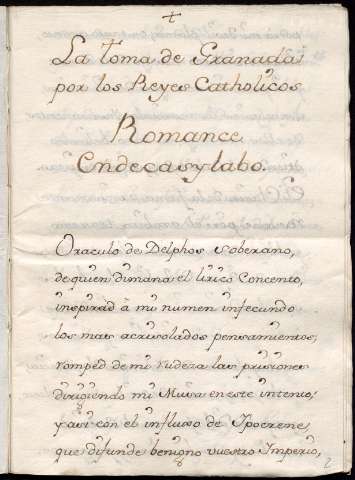 +
La toma de Granada
por los Reyes Catholicos
Romance
Endecasylabo.
Oraculo de Delphos soberano,
de quien dimana el lirico Concento,
inspirad à mi numen infecundo
los mas acrisolados pensamientos;
romped de mi rudeza las prisiones
dirigiendo mi Musa en este intento;
y asi con el influso de Ipocrene
que difunde benigno vuestro Imperio,
2